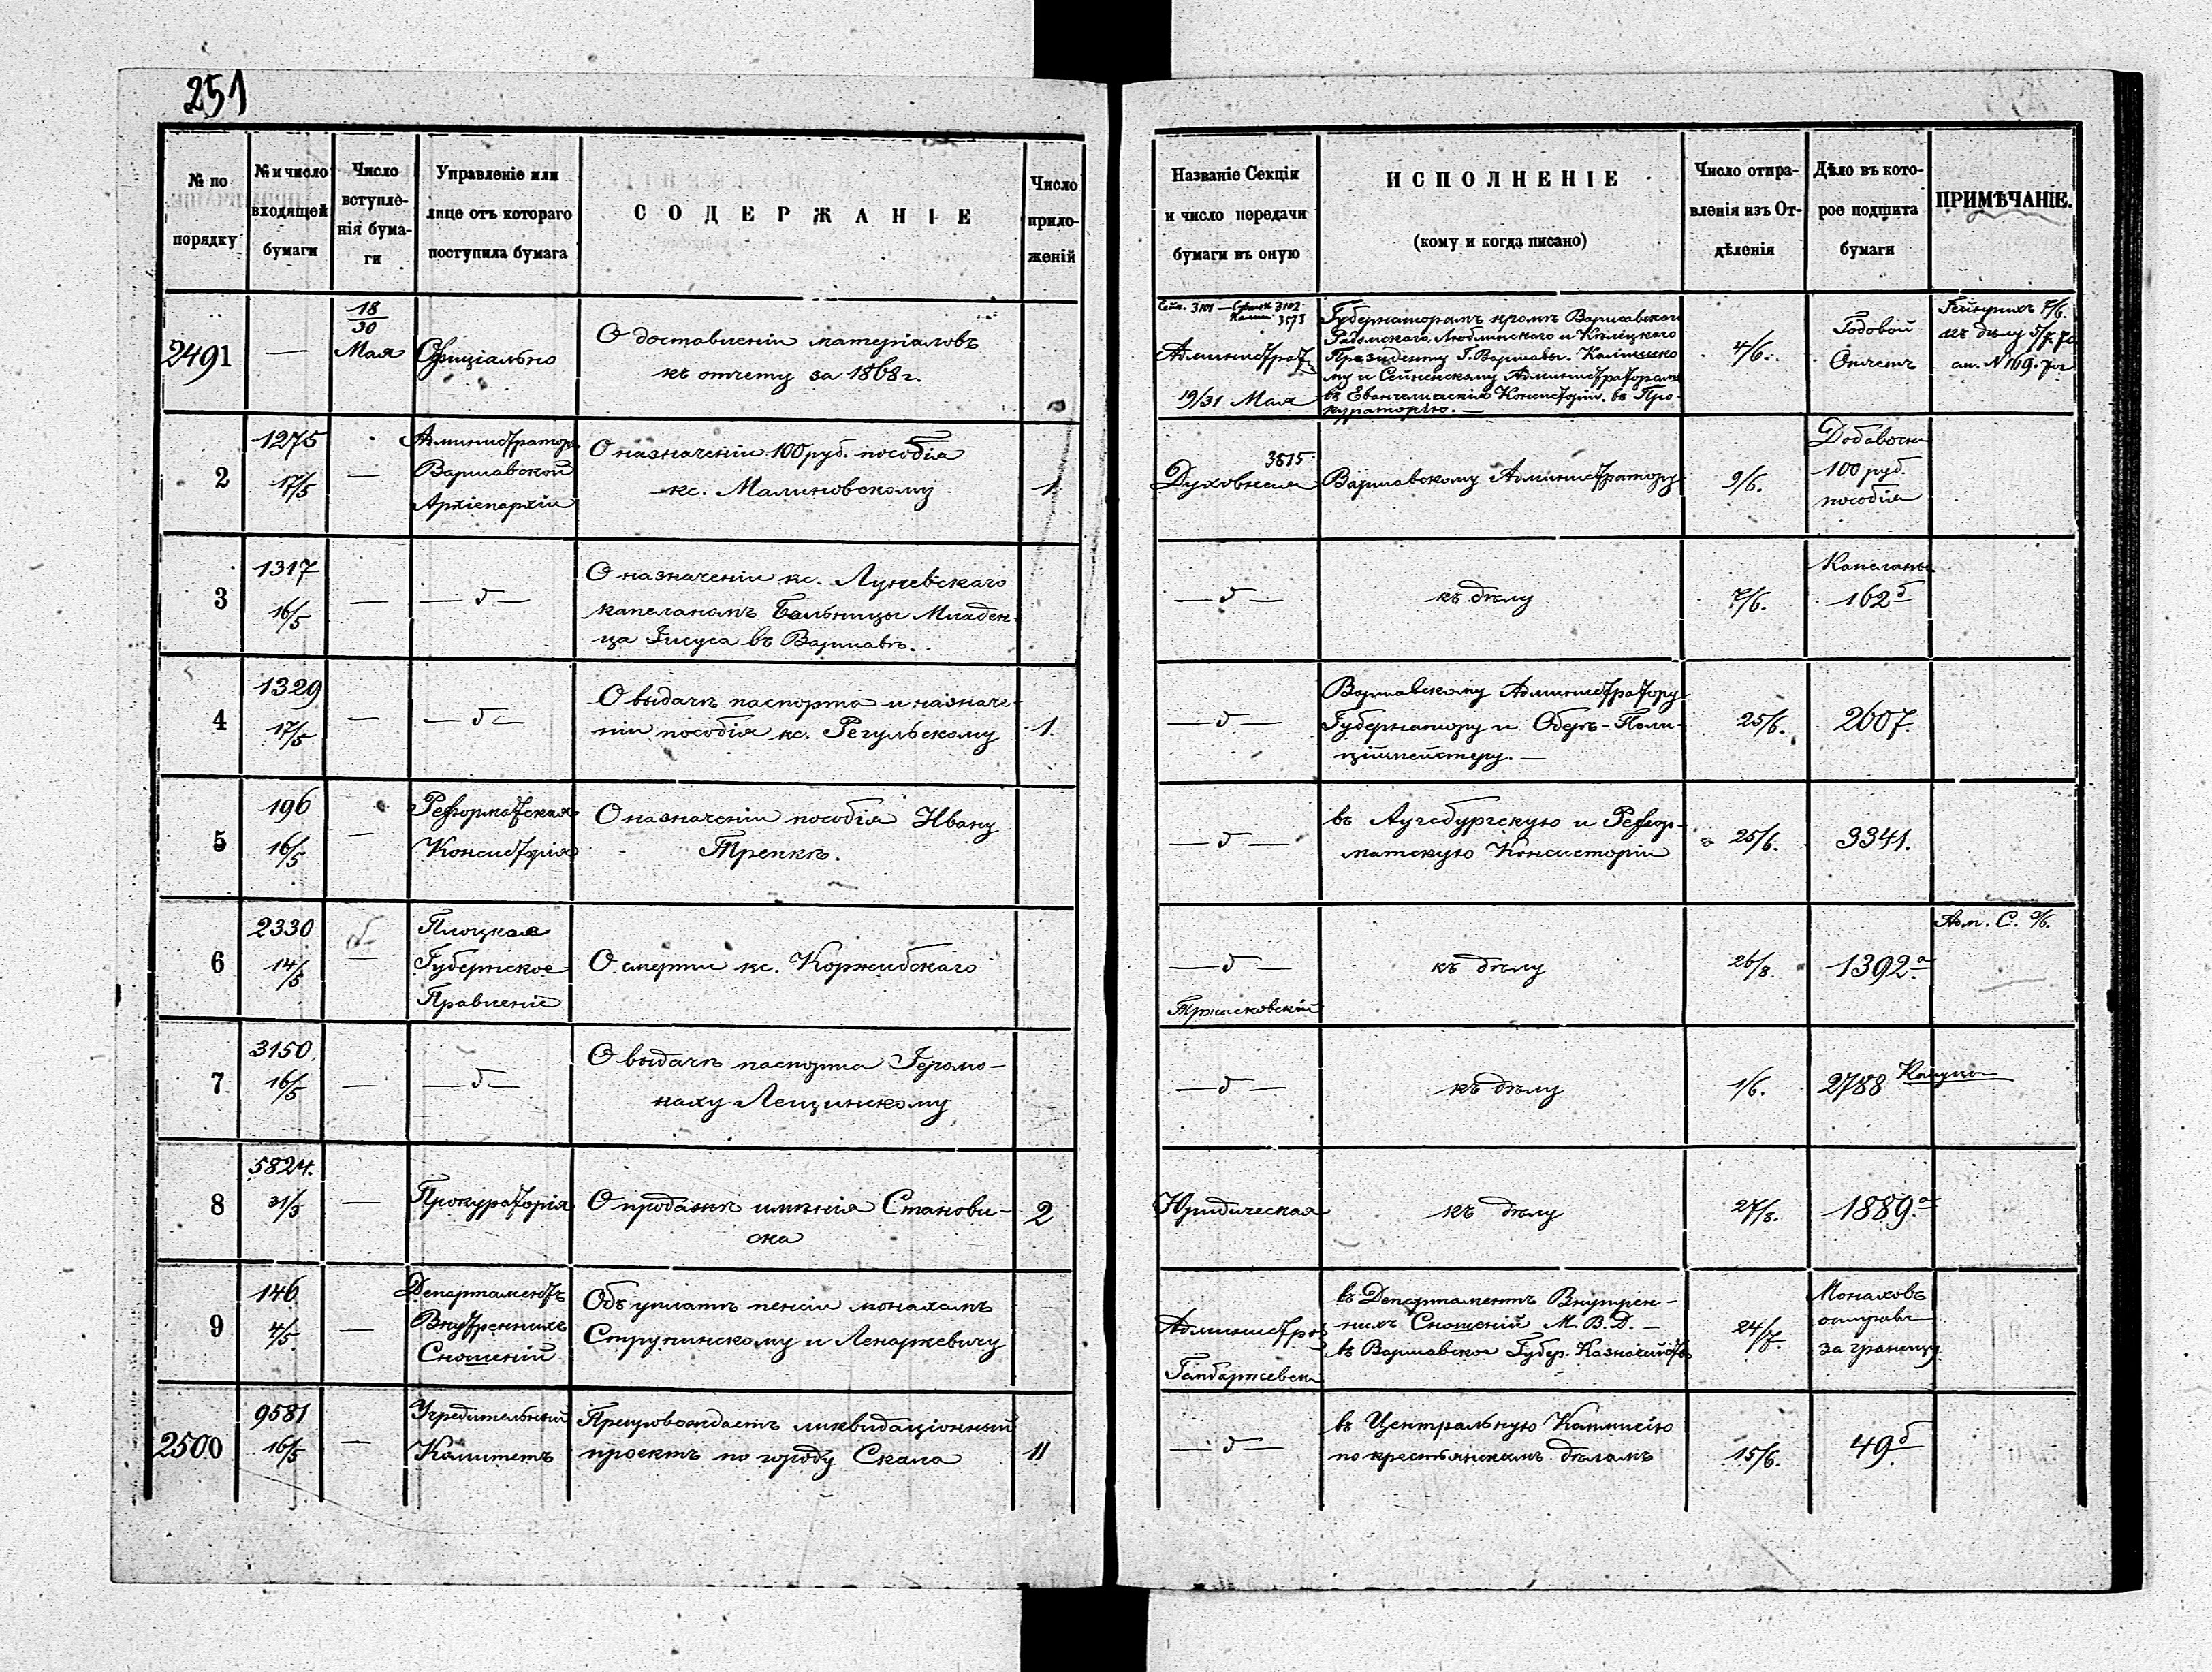 251
№ по порядку
№ и число входящей бумаги
Число вступле-
нія бума-
ги
Управленіе или
лице отъ котораго
поступила бумага
СОДЕРЖАНІЕ
Число
прило-
женій
Названіе Секціи
и число передачи
бумаги въ оную
ИСПОЛНЕНІЕ
(кому и когда писано)
Число отпра-
вленія изъ От-
дѣленія
Дѣло въ кото-
рое подшита
бумаги
ПРИМѢЧАНІЕ.
2491
—
18/30
Мая
Офиціально
О доставленіи матеріаловъ
къ отчету за 1868 г.
3101 — 3102
3573
Администрат
19/31 Мая
Губернаторамъ кромѣ Варшавскаго
Радомскаго, Люблинскаго и Кѣлецкаго
Президенту Г. Варшавы. Калишско
му и Сейненскому Администраторамъ
въ Евангелическія Консисторіи. въ Про-
кураторію. —
4/6.
Годовой
Отчетъ
7/6.
къ дѣлу 5/7. 70
2
1275
17/5
—
Администраторъ
Варшавской
Архіепархіи
О назначеніи 100 руб. пособія
кс. Малиновскому
1
3815
Духовная
Варшавскому Администратору
9/6.
Добавочн
100 руб.
пособія
3
1317
16/5
—
— д —
О назначеніи кс. Луневскаго
капеланомъ Больницы Младен-
ца Іисуса въ Варшавѣ.
— д —
къ дѣлу
7/6.
Капеланы
162 б
4
1329
17/5
—
— д —
О выдачѣ паспорта и назначе-
ніи пособія кс. Регульскому
1.
— д —
Варшавскому Администратору
Губернатору и Оберъ-Поли-
ціймейстеру. —
25/6.
2607.
5
196
16/5
—
Реформатская
Консисторія
О назначеніи пособія Ивану
Трепкѣ.
— д —
въ Аугсбургскую и Рефор-
матскую Консисторіи
25/6.
3341.
6
2330
14/5
—
Плоцкое
Губернское
Правленіе
О смерти кс. Коржибскаго
— д —
къ дѣлу
26/8.
1392. а
7
3150
16/5
—
— д —
О выдачѣ паспорта Іеромо-
наху Лещинскому
— д —
къ дѣлу
1/6.
2788
8
5824.
31/3
—
Прокураторія
О продажѣ имѣнія Станови-
ска
2
Юридическая
къ дѣлу
27/8.
1889. а
9
146
4/5
—
Департаментъ
Внутреннихъ
Сношеній
Объ уплатѣ пенсіи монахамъ
Струпинскому и Ленаркевичу
Администра
въ Департаментъ Внутрен-
нихъ Сношеній М. В. Д. —
въ Варшавское Губер. Казначейств
24/7.
Монаховъ
отправл
за границу
2500
9581
16/5
—
Учредительный
Комитетъ
Препровождаетъ ликвидаціонный
проектъ по городу Скала
11
— д —
въ Центральную Коммисію
по крестьянскимъ дѣламъ
15/6.
49. б